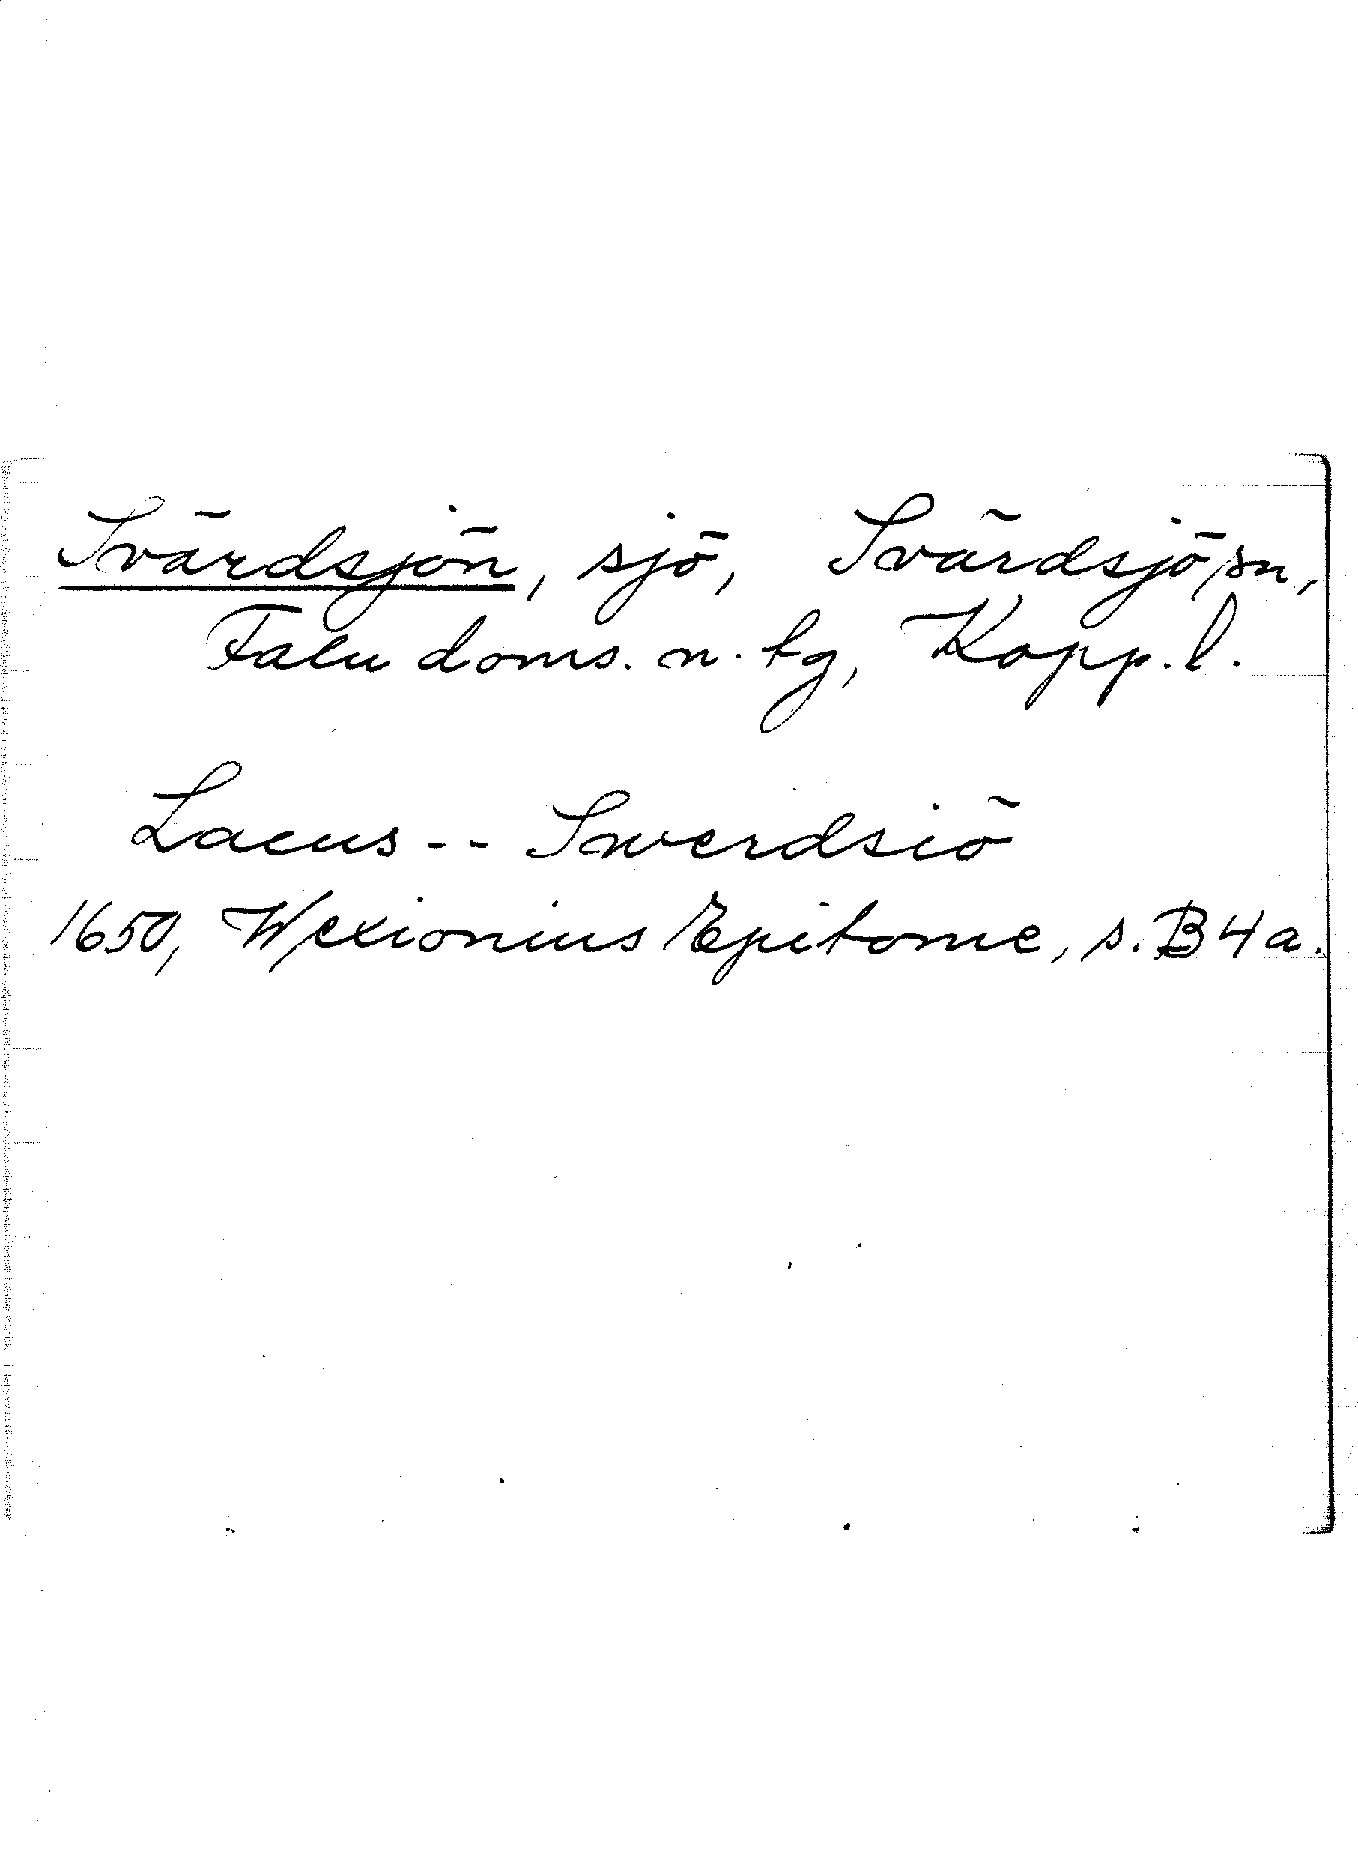 Svärdsjön, sjö, Svärdsjö sn,
Falu doms. n. tg, Kopp. l.
Lacus -- Swerdsiö
1650, Wexionius Epitome, s. B 4 a.